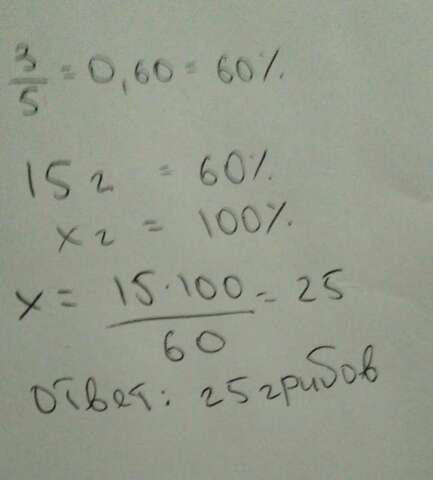 3/5 = 0,60 = 60%.
15 г = 60%.
х г = 100%.
х = 15·100/60 = 25
Ответ: 25 грибов